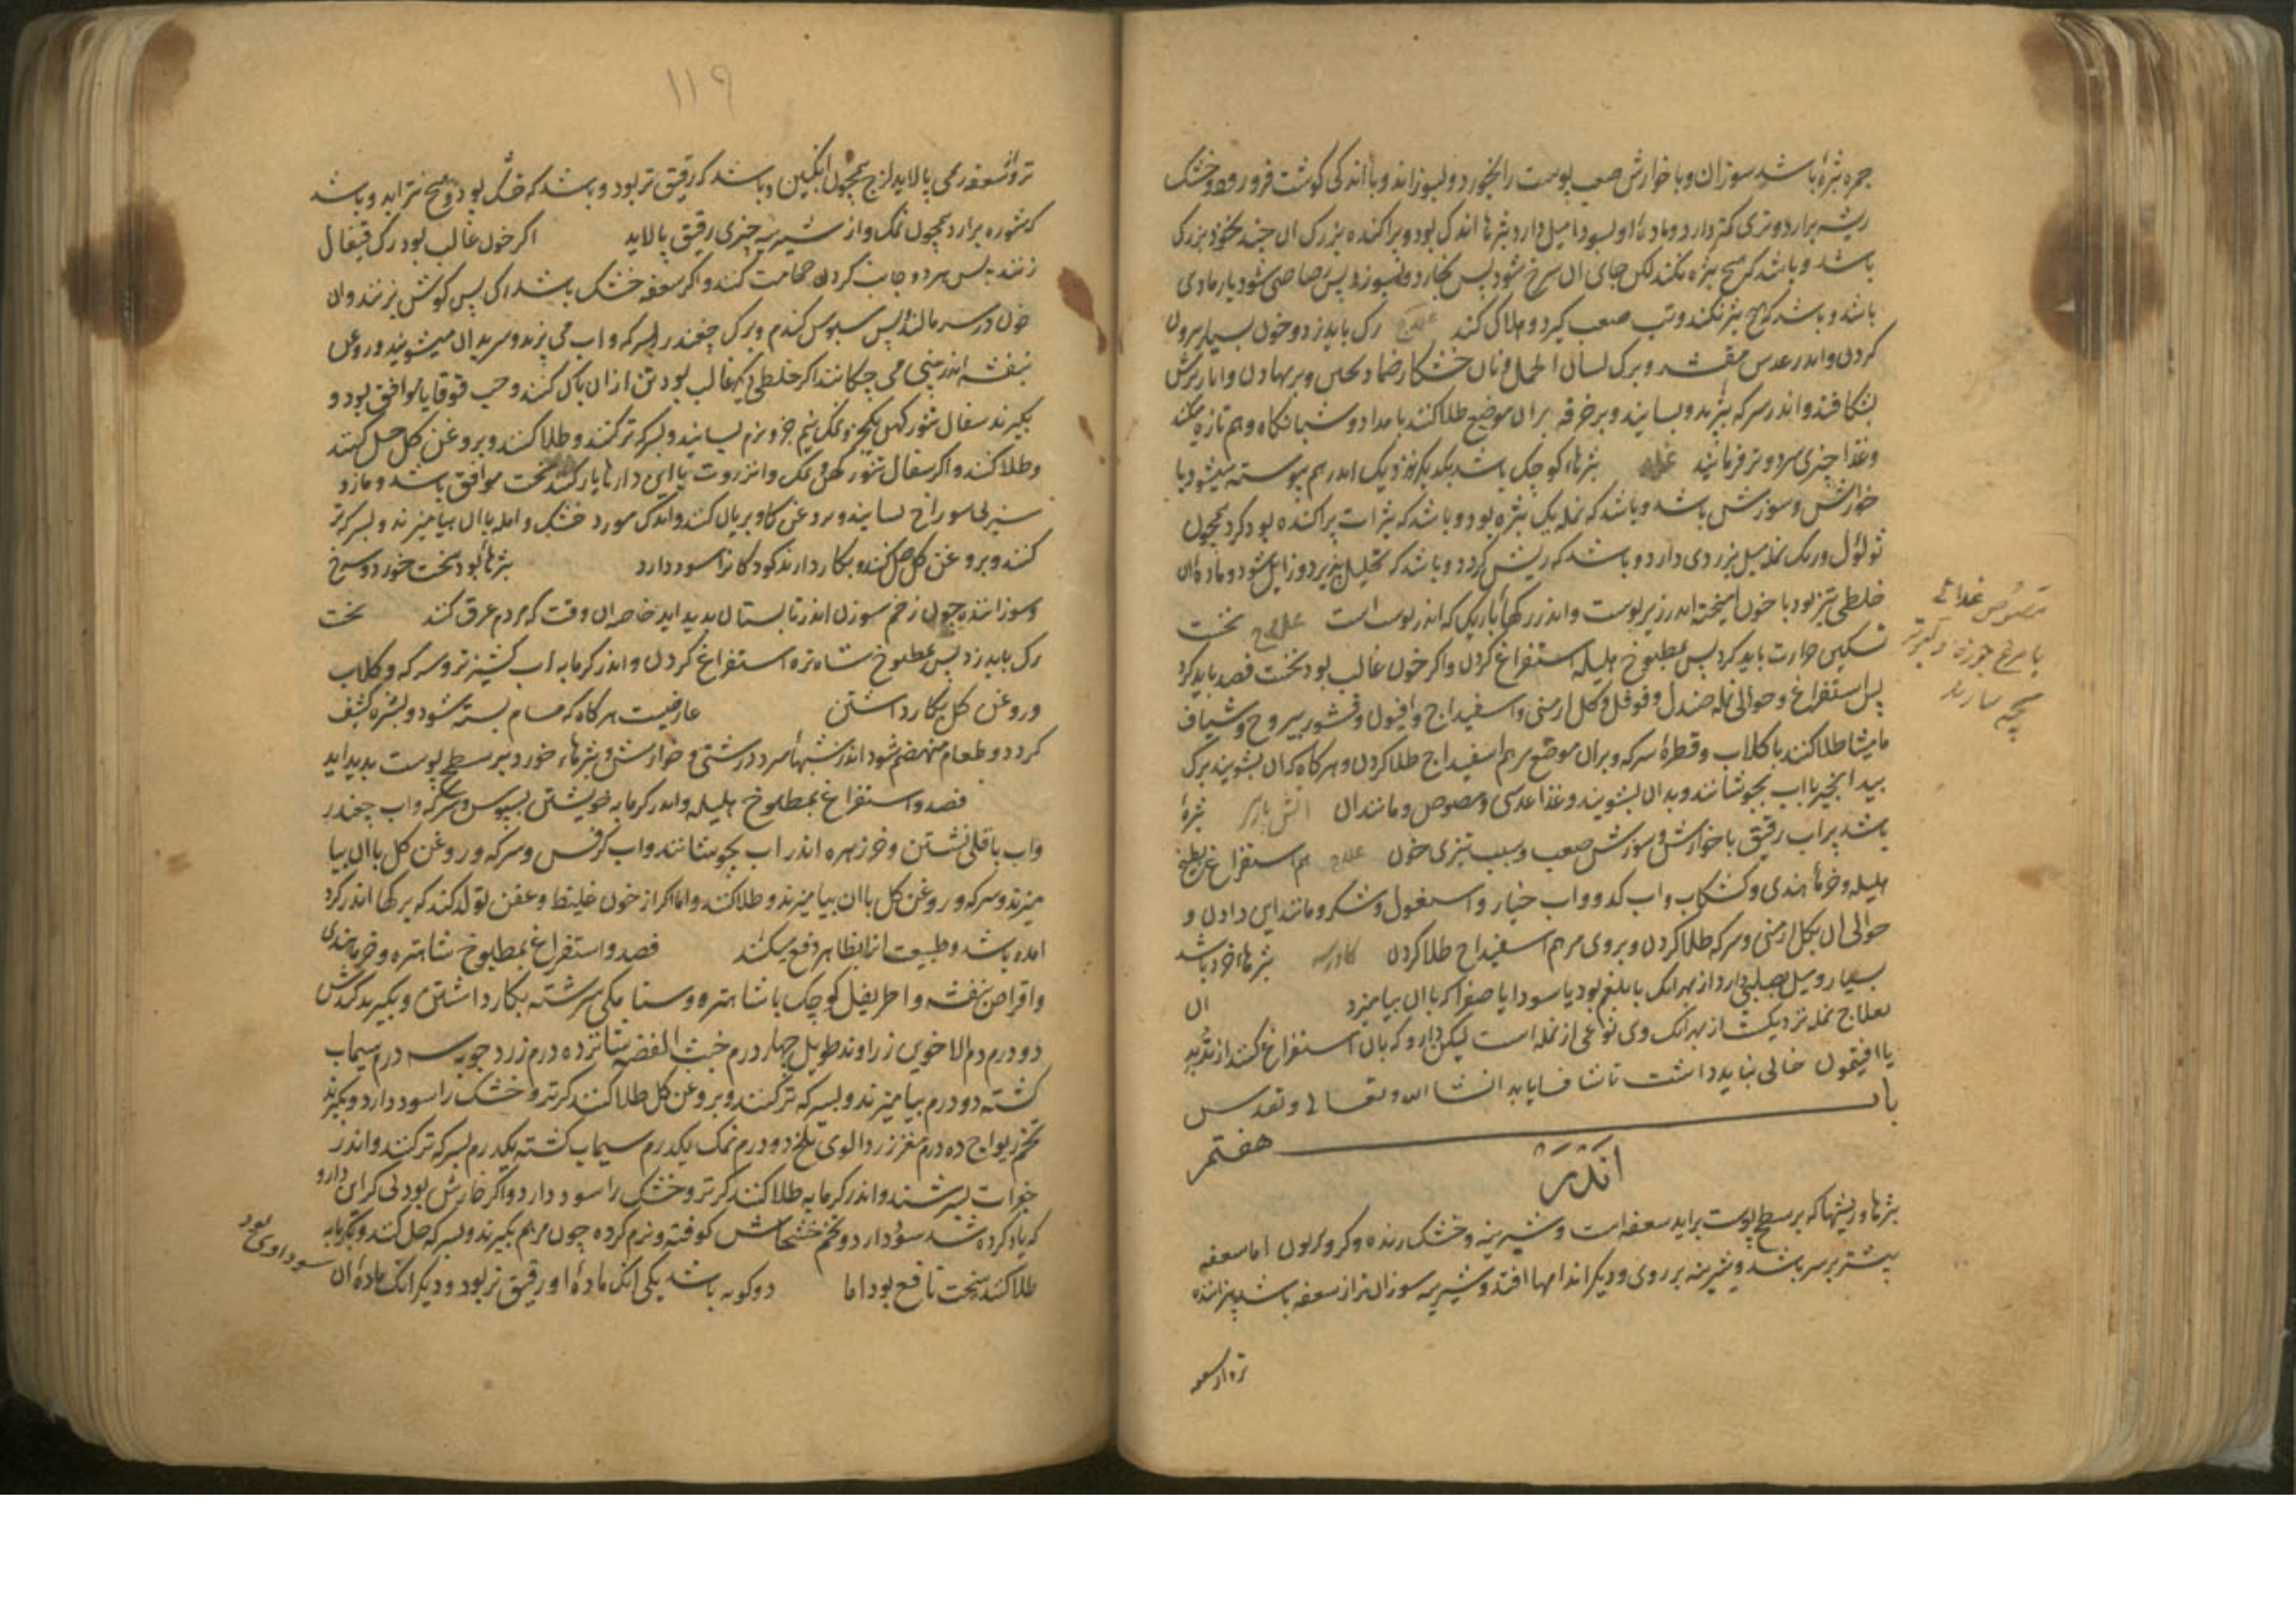 جمره بثرهٔ باشد سوزان و با خوارش صعب پوست را بخورد و بسوزاند و با اندکی گوشت فرو رود و خشک
ریشه برارد و تری کمتر دارد و مادهٔ او بسودا میل دارد بثرها اندک بود و پراکنده بزرک ان چند نخود بزرک
باشد و باشد که هیچ بثره نکند لکن جای ان سرخ شود پس بخارد و بسوزد پس رصاصی شود یا رمادی
باشد و باشد که هیچ بثر نکند و تب صعب گیرد و هلاک کند علاج رک باید زد و خون بسیار بیرون
کردن و اندر عدس مقشر و برک لسان الحمل و نان خشکار ضماد و بر نهادن و انار ترش
بشکافند و اندر سرکه بپزند و بسایند و بر خرقه بران موضع طلا کنند بامداد و شبانکاه و هم تازه میکنند
و غذا چیزی سرد و تر فرمایند نمله بثرهاء کوچک باشد بیکدیکر نزدیک اندر هم پیوسته میشود با
خوارش و سوزش باشد و باشد که نمله یک بثره بود و باشد که بثرات پراکنده بود کرد همچون
ثولول و رنک نمله میل بزردی دارد و باشد که ریش کردد و باشد که تحلیل پذیرد و زایل شود و مادهٔ ان
خلطی تیز بود با خون امیخته اندر زیر پوست و اندر رکهاء باریک که اندر پوست است علاج نخست
تسکین حرارت باید کرد پس بمطبوخ هلیله استفراغ کردن و اکر خون غالب بود نخست فصد باید کرد
پس استفراغ و حوالی نمله صندل و فوفل و کل ارمنی و اسفیداج و افیون و قشور یبروح و شیاف
مامیثا طلا کنند با کلاب و قطرهٔ سرکه و بران موضع مرهم اسفیداج طلا کردن و هرکاه که ان بشویند برک
بید انجیر با اب بجوشانند و بدان بشویند و غذا عدسی و مصوص و مانند ان اتش پارسی بثرهٔ
باشد پر اب رقیق با خوارش و سوزش صعب و سبب تیزی خون علاج هم استفراغ بطبخ
هلیله و خرماء هندی و کشکاب و اب کدو و اب خیار و اسبغول و شکر و مانند این دادن و
حوالی ان بکل ارمنی و سرکه طلا کردن و بروی مرهم اسفیداج طلا کردن کاورسه بثرهاء خرد باشد
بسیار و میل بصلبی دارد از بهر انک با بلغم بود یا سودا یا صفرا که با ان بیامیزد ان
بعلاج نمله نزدیکست از بهر انک وی نوعی از نمله است لیکن دارو که بان استفراغ کنند از تربد
یا افتیمون خالی نباید داشت تا شفا یابد انشا الله و تعالی و تقدس
باب هفتم
اندر
بثرها و ریشها که بر سطح پوست براید سعفه است و شیرینه و خشک ریشه و کر و کریون اما سعفه
بیشتر بر سر باشد و شیرینه بر روی و دیکر اندامها افتد و شیرینه سوزان تر از سعفه باشد
تر و از سعفه
مصوص غذائی
با مرغ جوزه و کبوتر
بچه سازند
۱۱۹
تر و از سعفه رمی پالاید لزج همچون انکبین و باشد که رقیق تر بود و باشد که خشک بود و هیچ نتراید و باشد
که شوره برارد همچون نمک و از شیرینه چیزی رقیق پالاید اکر خون غالب بود رک قیفال
زنند پس هر دو جانب کردن حجامت کنند و اکر سعفه خشک باشد رک پس کوش بزنند و ان
خون در سر مالند پس سبوس کندم و برک چغندر بسرکه و اب می پزند و سر بدان میشویند و روغن
بنفشه اندر بینی می چکانند اکر خلطی دیکر غالب بود تن از ان پاک کنند و حب قوقایا موافق بود و
بکیرند سفال تنور کهن یکجزو نمک نیم جزو نرم بسایند و بسرکه تر کنند و طلا کنند و بروغن کل حل کنند
و طلا کنند و اکر سفال تنور کهن و نمک و انزروت با این داروها یار کنند سخت موافق باشد و مازو
سبز بی سوراخ بسایند و بروغن کاو بریان کنند و اندک مورد خشک و امله با ان بیامیزند و بسرکه تر
کنند و بروغن کل حل کنند و بکار دارند کودکانرا سود دارد بثرهاء بود سخت خورد و سرخ
و سوزاننده چون زخم سوزن اندر تابستان پدید اید خاصه ان وقت که مردم عرق کند نخست
رک باید زد پس بمطبوخ شاه تره استفراغ کردن و اندر کرمابه اب کشنیز تر و سرکه و کلاب
و روغن کل بکار داشتن عارضیست هرکاه که مسام بسته شود و بشره کثیف
کردد و طعام منهضم شود اندر شبهاء سرد درشتی و خوارش و بثرهاء خورد بر سطح پوست پدید اید
فصد و استفراغ بمطبوخ هلیله و اندر کرمابه خویشتن بسبوس و سرکه و اب چغندر
و اب باقلی شستن و خرزهره اندر اب بجوشانند و اب کرفس و سرکه و روغن کل با ان بیا
میزند و سرکه و روغن کل با ان بیامیزند و طلا کنند و اما اکر از خون غلیظ و عفن تولد کند که برکها اندر کرد
امده باشد و طبیعت انرا بظاهر دفع میکند فصد و استفراغ بمطبوخ شاهتره و خرما هندی
و اقراص بنفشه و اطریفل کوچک با شاهتره و سنا مکی سرشته بکار داشتن و بکیرند کندش
دو درم دم الاخوین زراوند طویل چهار درم خبث الفضه شانزده درم زرد چوبه سه درم سیماب
کشته دو درم بیامیزند و بسرکه تر کنند و بروغن کل طلا کنند کر تر و خشک را سود دارد و بکیرند
تخم ریواج ده درم مغز زردالوی تلخ دو درم نمک یکدرم سیماب کشته یکدرم بسرکه تر کنند و اندر
جغرات بسرشند و اندر کرمابه طلا کنند کر تر و خشک را سود دارد و اکر خارش بود بی کر این دارو
که یاد کرده شد سود دارد و تخم خشخاش کوفته و نرم کرده چون مرهم بکیرند و بسرکه حل کنند و بکرمابه
طلا کنند سخت نافع بود اما دو کونه باشد یکی انک مادهٔ او رقیق تر بود و دیکر انک مادهٔ ان
سوداوی بود